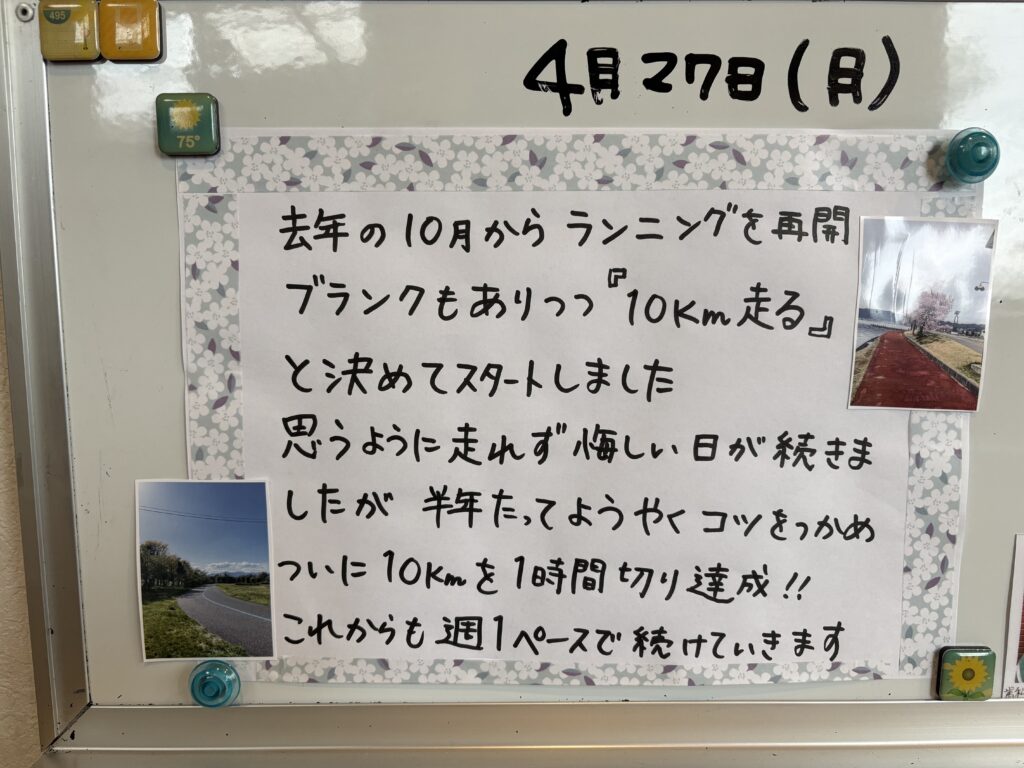 495
75°
4月27日(月)
去年の10月から ランニングを再開
ブランクもありつつ『10Km走る』
と決めてスタートしました
思うように走れず 悔しい日が続きま
したが 半年たってようやく コツをつかめ
ついに 10Kmを 1時間切り達成!!
これからも 週1ペースで 続けていきます